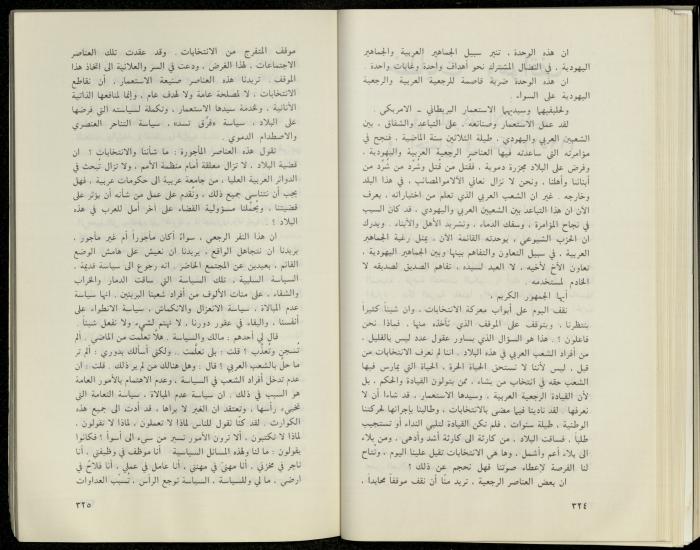 ان هذه الوحدة ، تنير سبيل الجماهير العربية والجماهير
اليهودية ، في النضال المشترك نحو أهداف واحدة وغايات واحدة .
ان هذه الوحدة ضربة قاصمة للرجعية العربية والرجعية
اليهودية على السواء .
وحليفيهما وسيديهما الاستعمار البريطاني ـ الامريكي .
لقد عمل الاستعمار وصنائعه ، على التباعد والشقاق ، بين
الشعبين العربي واليهودي ، طيلة الثلاثين سنة الماضية ، فنجح في
مؤامرته التي ساعدته فيها العناصر الرجعية العربية واليهودية ،
وفرض على البلاد مجزرة دموية ، فقتل من قتل وشُرّد من شُرّد من
أبنائنا وأهلنا ، ونحن لا نزال نعاني الآلام والمصائب ، في هذا البلد
وخارجه . غير ان الشعب العربي الذي تعلم من اختباراته ، يعرف
الآن ان هذا التباعد بين الشعبين العربي واليهودي ، قد كان السبب
في نجاح المؤامرة ، وسفك الدماء ، وتشريد الأهل والأبناء . ويدرك
ان الحزب الشيوعي ، بوحدته القائمة الآن ، يمثل رغبة الجماهير
العربية ، في سبيل التعاون والتفاهم بينها وبين الجماهير اليهودية ،
تعاون الأخ لأخيه ، لا العبد لسيده ، تفاهم الصديق لصديقه لا
الخادم لمستخدمه .
أيها الجمهور الكريم ،
نقف اليوم على أبواب معركة الانتخابات ، وان شيئاً كثيراً
ينتظرنا ، ويتوقف على الموقف الذي نأخذه منها ، فماذا نحن
فاعلون ؟ هذا هو السؤال الذي يساور عقول عدد ليس بالقليل ،
من أفراد الشعب العربي في هذه البلاد . اننا لم نعرف الانتخابات من
قبل ، ليس لأننا لا نستحق الحياة الحرة ، الحياة التي يمارس فيها
الشعب حقه في انتخاب من يشاء ، ممن يتولون القيادة والحكم ، بل
لأن القيادة الرجعية العربية ، وسيدها الاستعمار ، قد شاءا ان لا
نعرفها . لقد نادينا فيما مضى بالانتخابات ، وطالبنا بإجرائها لحركتنا
الوطنية ، طيلة سنوات ، فلم تكن القيادة لتلبي النداء أو تستجيب
طلباً ، فساقت البلاد ، من كارثة الى كارثة أشد وأدهى ، ومن بلاء
الى بلاء أعم وأشمل ، وها هي الانتخابات تقبل علينا اليوم ، وتتاح
لنا الفرصة لإعطاء صوتنا فهل نحجم عن ذلك ؟
ان بعض العناصر الرجعية ، تريد منّا أن نقف موقفاً محايداً ،
٣٢٤
موقف المتفرج من الانتخابات . وقد عقدت تلك العناصر
الاجتماعات ، لهذا الغرض ، ودعت في السر والعلانية الى اتخاذ هذا
الموقف . تريدنا هذه العناصر صنيعة الاستعمار ، أن نقاطع
الانتخابات ، لا لمصلحة عامة ولا لهدف عام ، وإنما لمنافعها الذاتية
الأنانية ، ولخدمة سيدها الاستعمار ، وتكملة لسياسته التي فرضها
على البلاد ، سياسة «فرّق تسد» ، سياسة التناحر العنصري
والاصطدام الدموي .
تقول هذه العناصر المأجورة : ما شأننا والانتخابات ؟ ان
قضية البلاد ، لا تزال معلقة أمام منظمة الأمم ، ولا تزال تُبحث في
الدوائر العربية العليا ، من جامعة عربية الى حكومات عربية ، فهل
يجب أن نتناسى جميع ذلك ، ونُقدم على عمل من شأنه أن يؤثر على
قضيتنا ، ويُحمّلنا مسؤولية القضاء على آخر أمل للعرب في هذه
البلاد ؟
ان هذا النفر الرجعي ، سواءً أكان مأجوراً أم غير مأجور ،
يريدنا ان نتجاهل الواقع ، يريدنا ان نعيش على هامش الوضع
القائم ، بعيدين عن المجتمع الحاضر . انه رجوع الى سياسة قديمة ،
السياسة السلبية ، تلك السياسة التي ساقت الدمار والخراب
والشقاء ، على مئات الألوف من أفراد شعبنا البريئين . انها سياسة
عدم المبالاة ، سياسة الانعزال والانكماش ، سياسة الانطواء على
أنفسنا ، والبقاء في عقور دورنا ، لا نهتم لشيء ولا نفعل شيئاً .
قال لي أحدهم : مالك والسياسة . هلّا تعلّمت من الماضي . ألم
تُسجن وتُعذَّب ؟ قلت : بلى تعلّمت .. ولكني أسألك بدوري : ألم تر
ما حلّ بالشعب العربي ؟ قال : وهل هنالك من لم ير ذلك . قلت : ان
عدم تدخل أفراد الشعب في السياسة ، وعدم الاهتمام بالأمور العامة
هو السبب في ذلك . ان سياسة عدم المبالاة ، سياسة النعامة التي
تخبىء رأسها ، وتعتقد ان الغير لا يراها ، قد أدت الى جميع هذه
الكوارث . لقد كنّا نقول للناس لماذا لا تعملون ، لماذا لا تقولون ،
لماذا لا تكتبون ، ألا ترون الأمور تسير من سيء الى أسوأ ؟ فكانوا
يقولون : ما لنا ولهذه المسائل السياسية . أنا موظف في وظيفتي ، أنا
تاجر في مخزني ، أنا مهني في مهنتي ، أنا عامل في عملي ، أنا فلاح في
أرضي ، ما لي وللسياسة ، السياسة توجع الرأس ، تُسبّب العداوات
٣٢٥